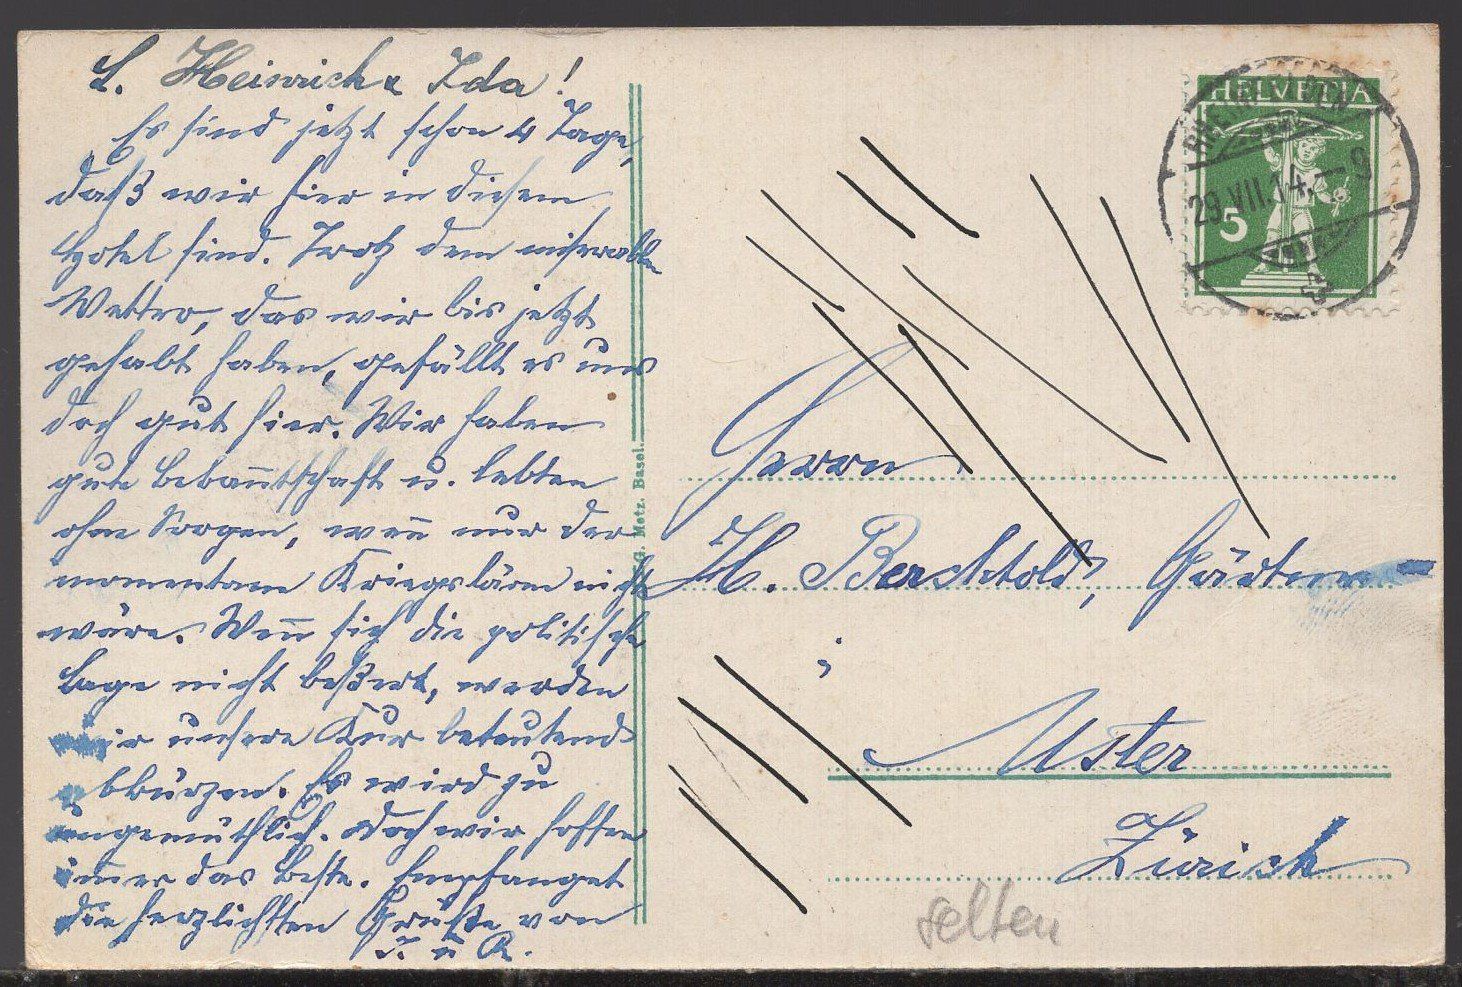 L. Heinrich & Ida!
Es sind jetzt schon 4 Tage,
daß wir hier in diesem
Hotel sind. Trotz dem miserablen
Wetter, das wir bis jetzt
gehabt haben, gefällt es uns
doch gut hier. Wir haben
gute Bekan̄tschaft u. lebten
ohne Sorgen, wen̄ nur der
momentane Kriegslärm nicht
wäre. Wen̄ sich die politische
Lage nicht beßert, werden
wir unsere Kur beteutend
abkürzen. Es wird zu
ungemüthlich. Doch wir hoffen
im̄er das Beste. Empfanget
die herzlichsten Grüße von
u R.
G. Metz, Basel.
HELVETIA
5
29.VII.14.–9
Herrn
H. Berchtold, Gärtner
Uster
Zürich
selten